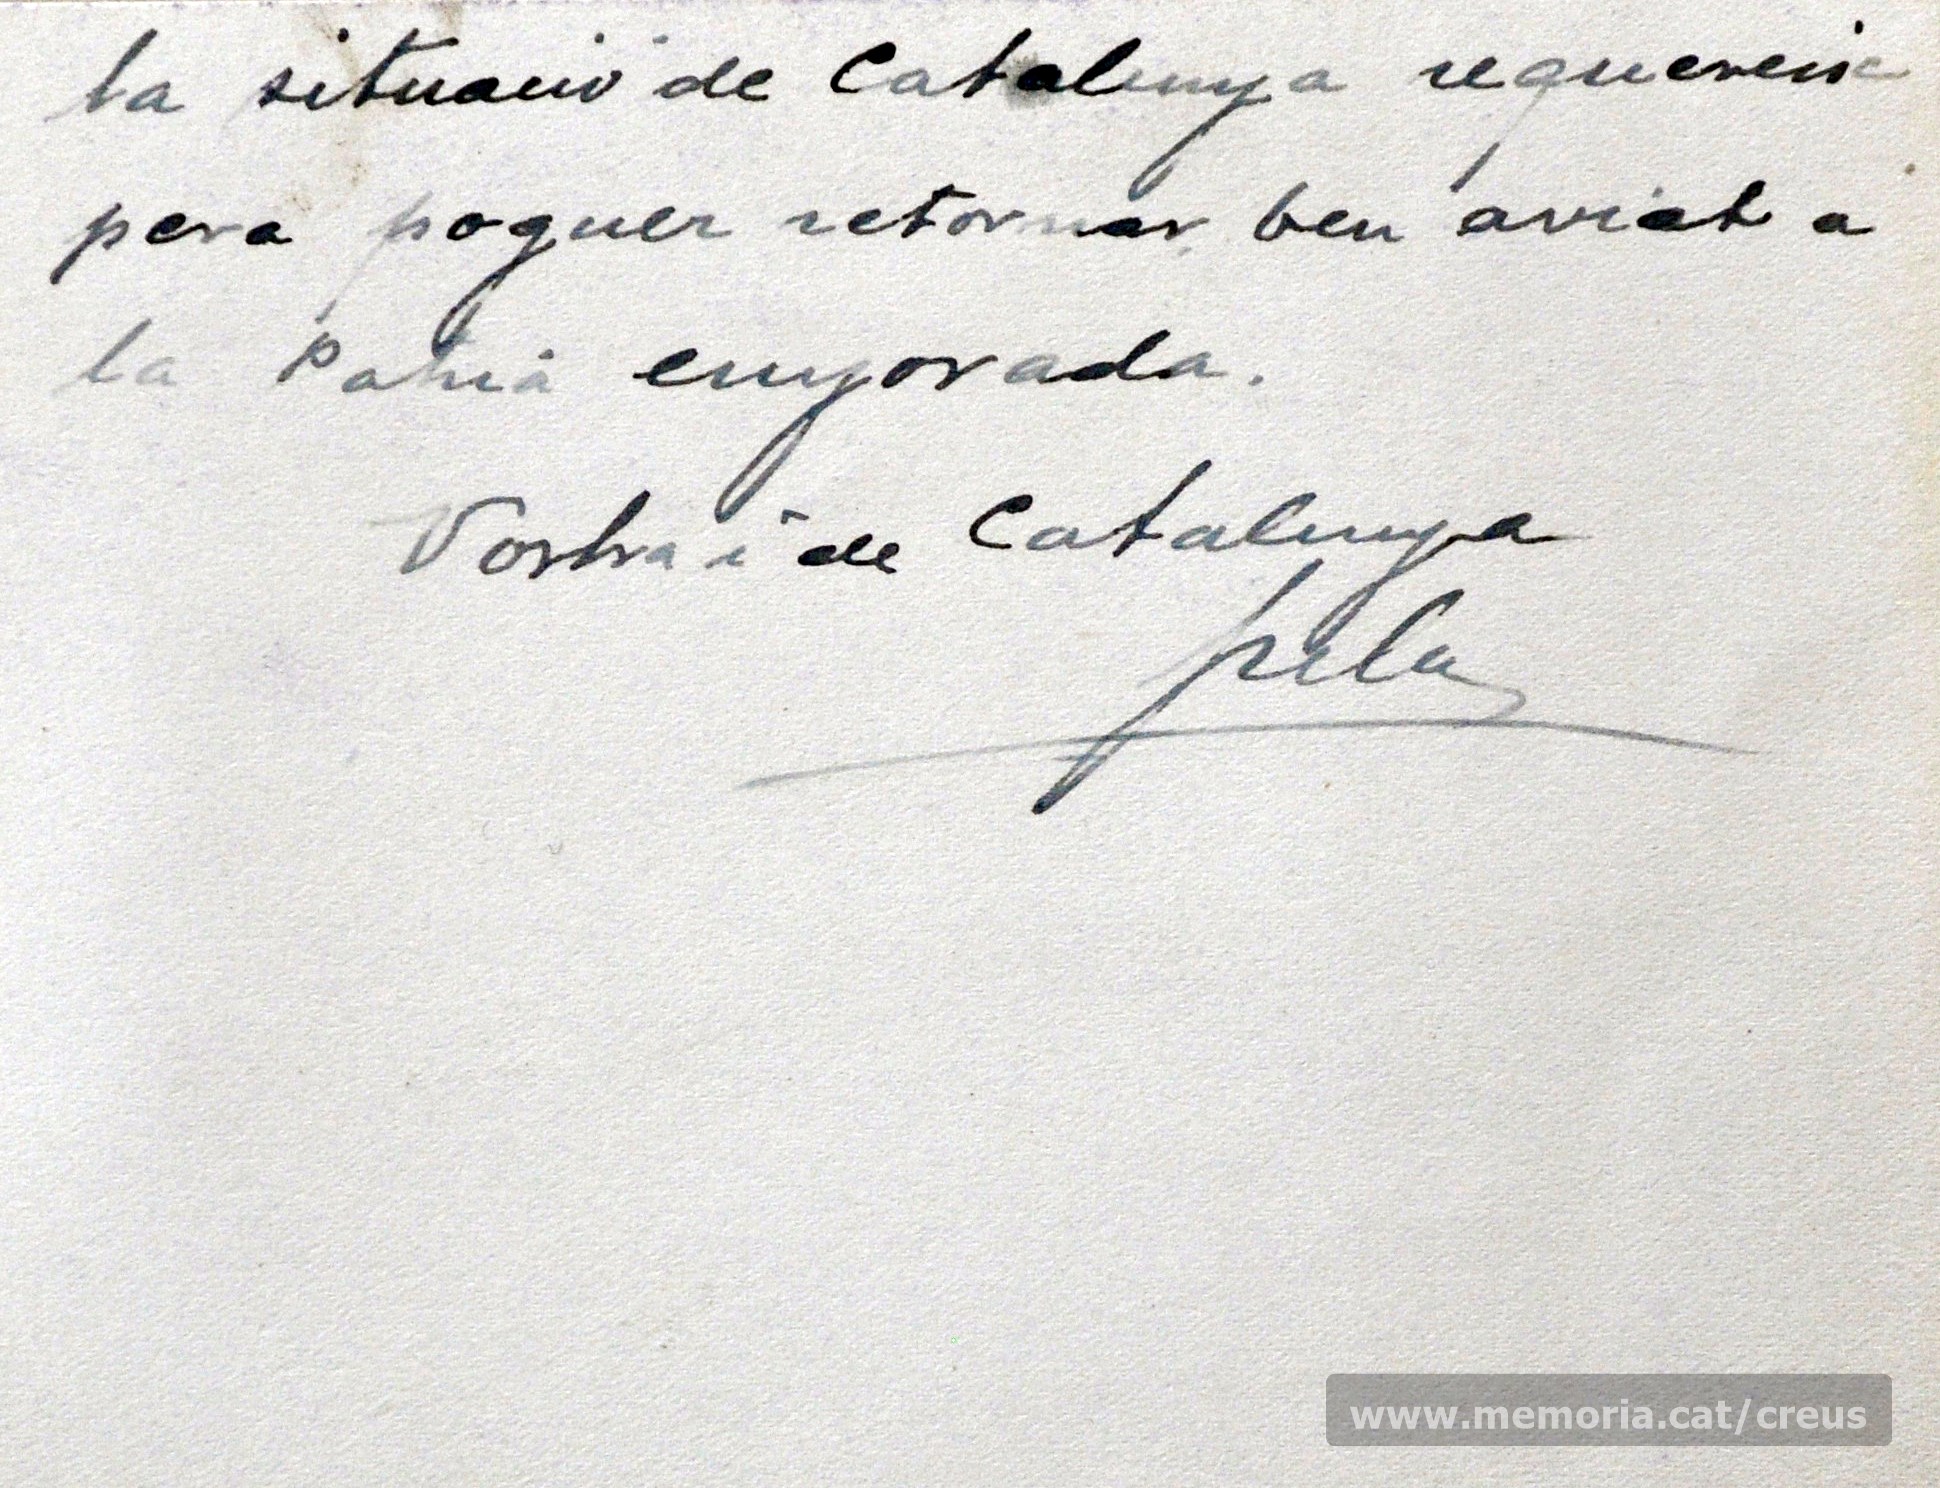 la situació de Catalunya requereix
pera poguer retornar ben aviat a
la Patria enyorada.
Vostra i de Catalunya
www.memoria.cat/creus